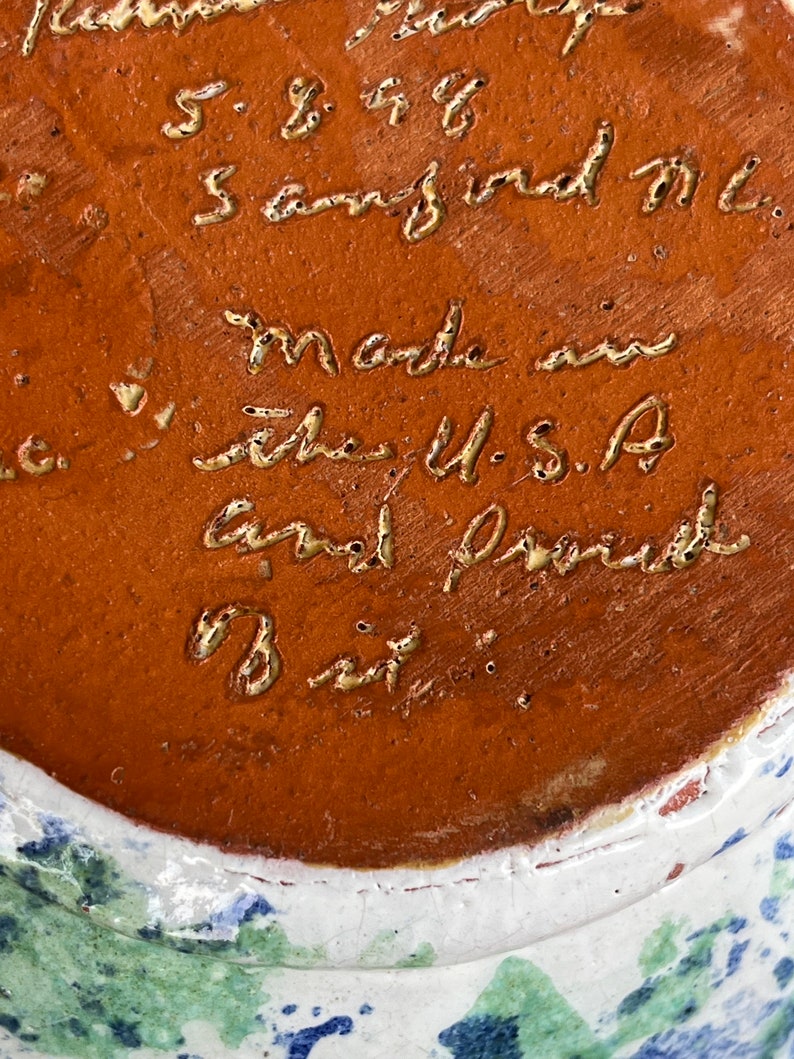 5.8.98
Sanford N C.
Made in
the U.S.A
and Proud
of it!
c.